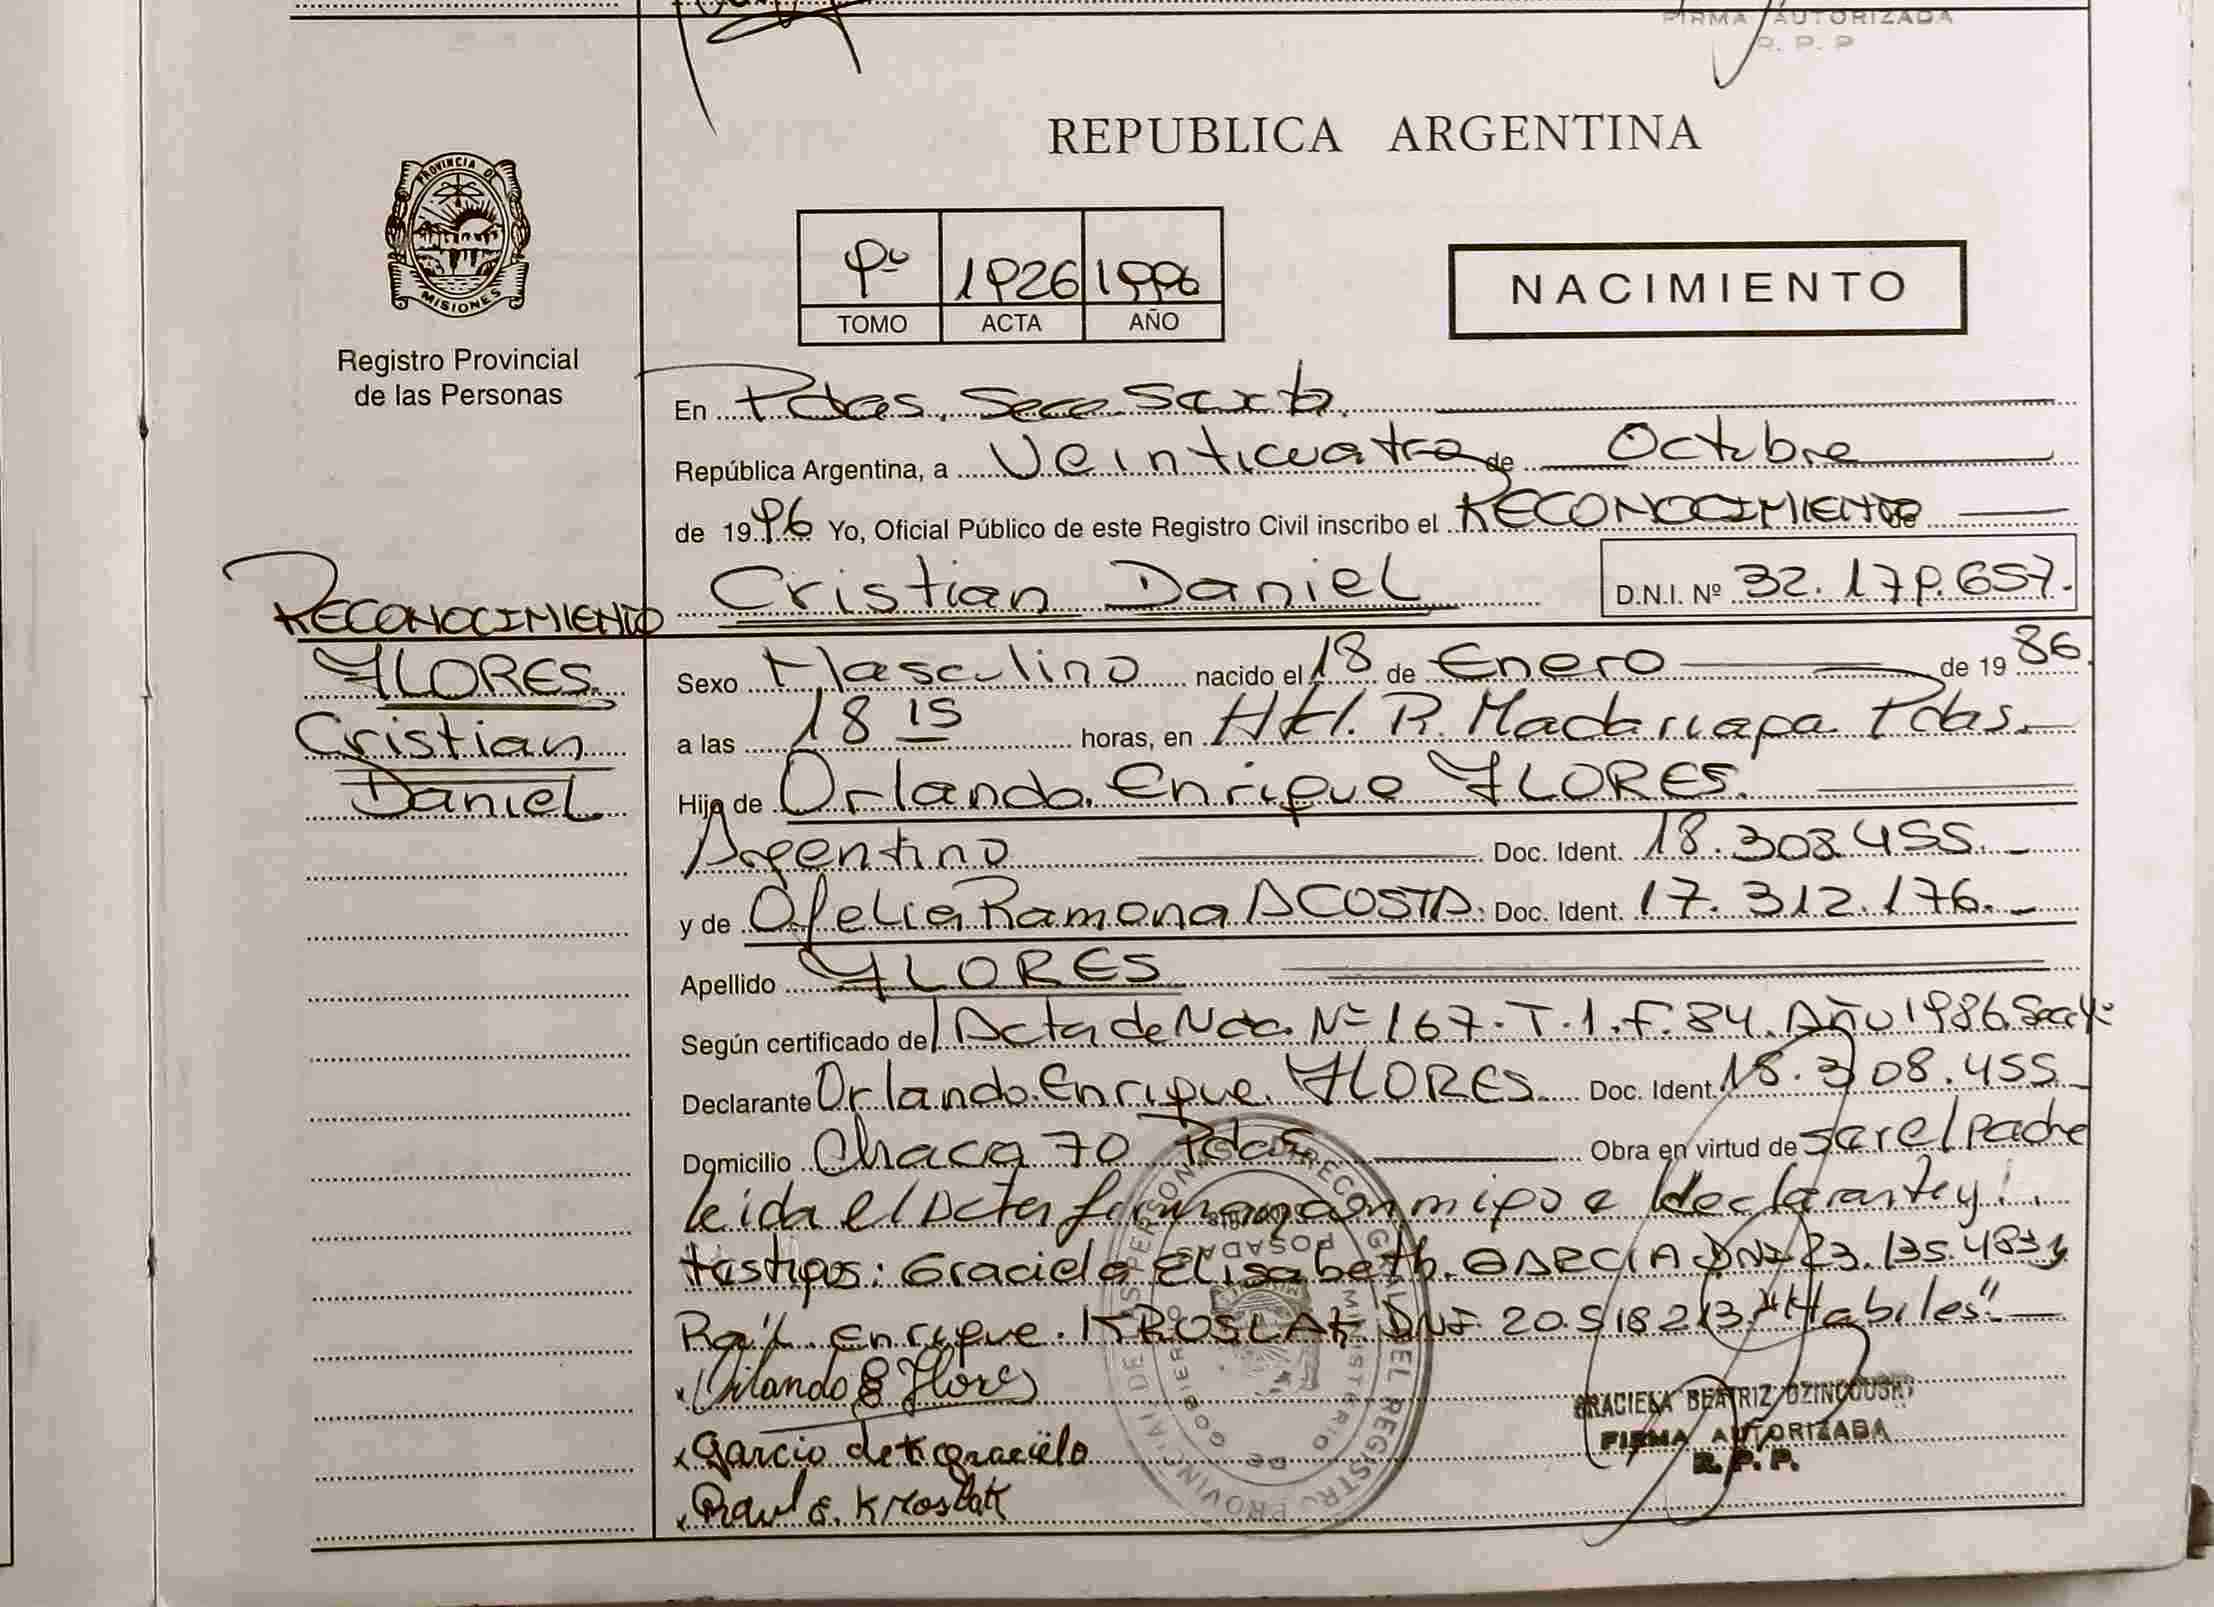 FIRMA AUTORIZADA
R. P. P
PROVINCIA DE
MISIONES
Registro Provincial
de las Personas
REPUBLICA ARGENTINA
9º 1926 1996
TOMO ACTA AÑO
NACIMIENTO
En Pdas. Secc. Sexta.
República Argentina, a Veinticuatro de Octubre
de 1996 Yo, Oficial Público de este Registro Civil inscribo el RECONOCIMIENTO de
Cristian Daniel D.N.I. Nº 32.179.657.
RECONOCIMIENTO
FLORES.
Cristian
Daniel
Sexo Masculino nacido el 18 de Enero de 1986.
a las 18 15 horas, en Htl. R. Madariaga Pdas.
Hijo de Orlando Enrique FLORES.
Argentino Doc. Ident. 18.308.455.
y de Ofelia Ramona ACOSTA. Doc. Ident. 17.312.176.
Apellido FLORES
Según certificado del Acta de Nac. Nº 167. T. 1. F. 84. Año 1986.
Declarante Orlando Enrique FLORES. Doc. Ident. 18.308.455
Domicilio Chaca 70 Pdas. Obra en virtud de ser el padre
leida el Acta firman conmigo el declarante y
testigos: Graciela Elisabeth GARCIA DNI 23.135.483 y
Raúl Enrique KROSLAK DNI 20.518.213. "Habiles"
Orlando E Flores
Garcia de K Graciela
Raul E. Kroslak
DIRECCION GRAL DEL REGISTRO PROVINCIAL DE LAS PERSONAS
MINISTERIO DE GOBIERNO
POSADAS
MISIONES
GRACIELA BEATRIZ
FIRMA AUTORIZADA
R. P. P.